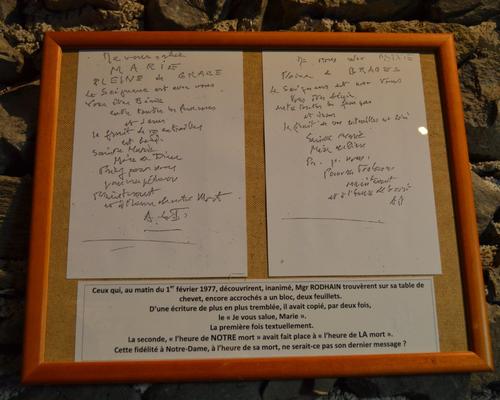 Je vous salue
MARIE
PLEINE de GRACE
Le Seigneur est avec vous.
Vous êtes Bénie
entre toutes les femmes
et Jésus
le fruit de vos entrailles
est béni.
Sainte Marie
Mère de Dieu
Priez pour nous
pauvres pécheurs
Maintenant
et à l'heure de notre Mort
Je vous salue MARIE
Pleine de GRACES
Le Seigneur est avec vous
Vous êtes bénie
entre toutes les femmes
et Jésus
le fruit de vos entrailles est béni
Sainte Marie
Mère de Dieu
P. p. nous
pauvres
maintenant
et à l'heure de la
Ceux qui, au matin du 1er février 1977, découvrirent, inanimé, Mgr RODHAIN trouvèrent sur sa table de
chevet, encore accrochés a un bloc, deux feuillets.
D'une écriture de plus en plus tremblée, il avait copié, par deux fois,
le « Je vous salue, Marie ».
La première fois textuellement.
La seconde, « l'heure de NOTRE mort » avait fait place à « l'heure de LA mort ».
Cette fidélité à Notre-Dame, à l'heure de sa mort, ne serait-ce pas son dernier message ?